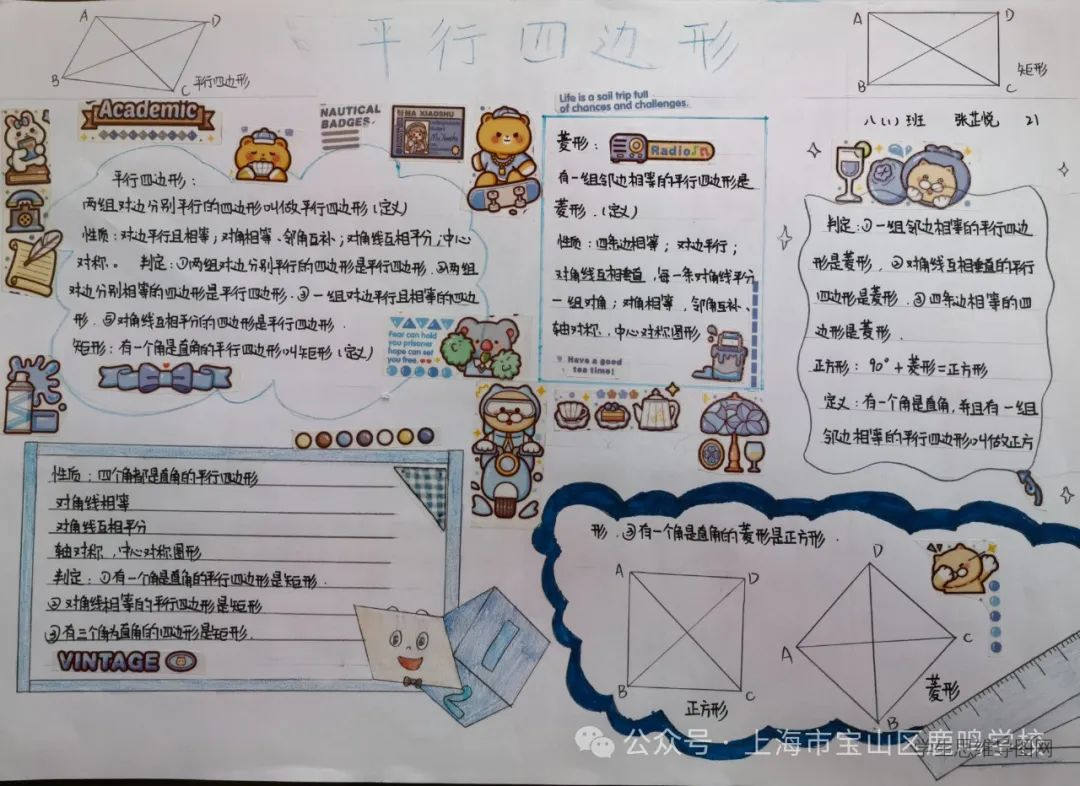 平行四边形
A
D
B
C
平行四边形
A
D
B
C
矩形
八(1)班 张芷悦 21
Academic
NAUTICAL
BADGES.
MA XIAOSHU
Life is a sail trip full
of chances and challenges.
平行四边形：
两组对边分别平行的四边形叫做平行四边形(定义)
性质：对边平行且相等；对角相等、邻角互补；对角线互相平分；中心
对称。 判定：①两组对边分别平行的四边形是平行四边形．②两组
对边分别相等的四边形是平行四边形．③一组对边平行且相等的四边
形．⑤对角线互相平分的四边形是平行四边形．
矩形：有一个角是直角的平行四边形叫矩形(定义)
Fear can hold
you prisoner
hope can set
you free.
菱形：
Radio
有一组邻边相等的平行四边形是
菱形．(定义)
性质：四条边相等；对边平行；
对角线互相垂直，每一条对角线平分
一组对角；对角相等、邻角互补、
轴对称、中心对称图形
Have a good
tea time!
判定：①一组邻边相等的平行四边
形是菱形．②对角线互相垂直的平行
四边形是菱形．③四条边相等的四
边形是菱形．
正方形：90°+菱形=正方形
定义：有一个角是直角，并且有一组
邻边相等的平行四边形叫做正方
性质：四个角都是直角的平行四边形
对角线相等
对角线互相平分
轴对称，中心对称图形
判定：①有一个角是直角的平行四边形是矩形．
②对角线相等的平行四边形是矩形
③有三个角为直角的四边形是矩形．
VINTAGE
形．③有一个角是直角的菱形是正方形．
A
D
B
C
正方形
D
A
C
B
菱形
公众号·上海市宝山区鹿鸣学校
学生思维导图网